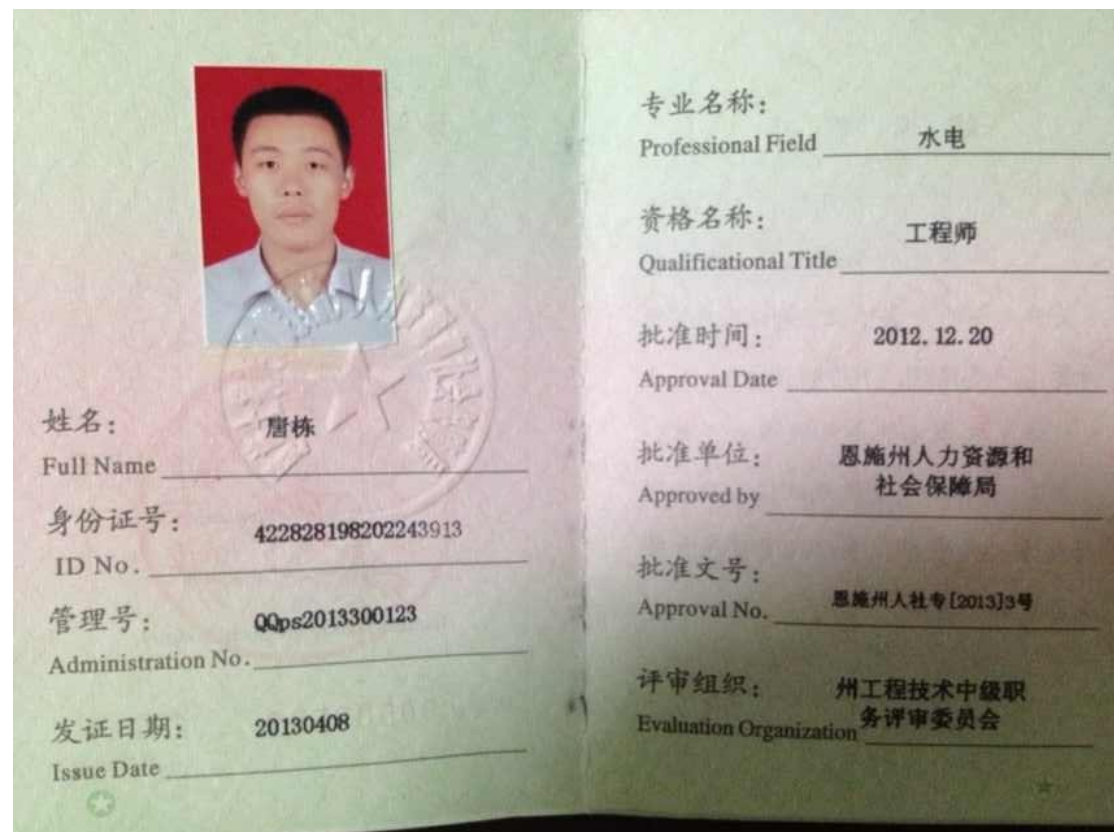 姓名：
唐栋
Full Name
身份证号：
422828198202243913
ID No.
管理号：
QQps2013300123
Administration No.
发证日期：
20130408
Issue Date
专业名称：
水电
Professional Field
资格名称：
工程师
Qualificational Title
批准时间：
2012.12.20
Approval Date
批准单位：
恩施州人力资源和
社会保障局
Approved by
批准文号：
恩施州人社专[2013]3号
Approval No.
评审组织：
州工程技术中级职
务评审委员会
Evaluation Organization